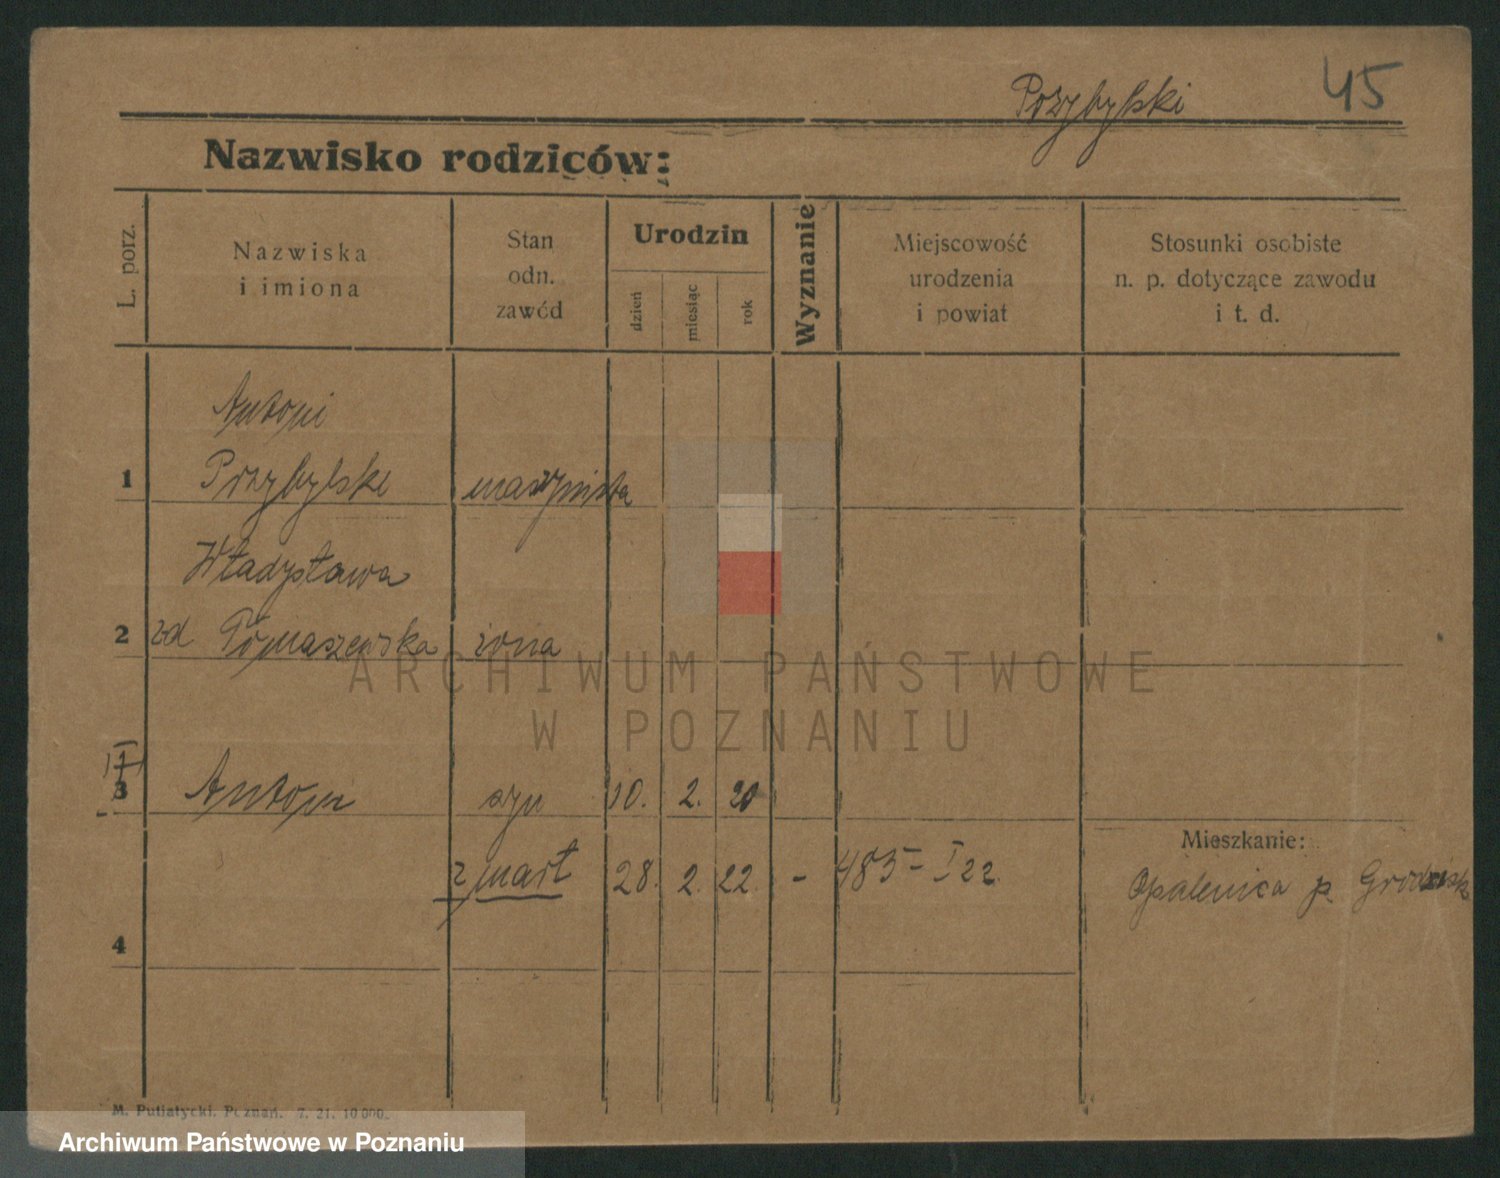 Przybylski 45
Nazwisko rodziców:
L. porz.
Nazwiska
i imiona
Stan
odn.
zawód
Urodzin
dzień
miesiąc
rok
Wyznanie
Miejscowość
urodzenia
i powiat
Stosunki osobiste
n. p. dotyczące zawodu
i t. d.
Antoni
1 Przybylski maszynista
Władysława
2 zd Tomaszewska żona
3 Antoni syn 10. 2. 20
Mieszkanie:
zmarł 28. 2. 22. - 485 - I 22.
Opalenica p Grodzisk
4
M. Putiatycki. Poznań. 7. 21. 10 000.
ARCHIWUM PAŃSTWOWE
W POZNANIU
Archiwum Państwowe w Poznaniu